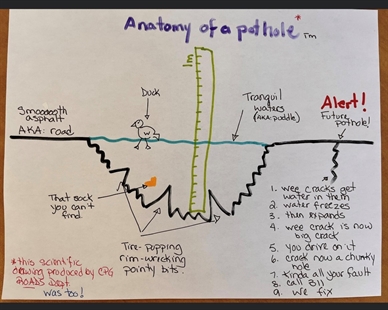 Anatomy of a pothole * TM
E
Duck
Smooooth
asphalt
AKA: road
Tranquil
waters
(AKA: puddle)
Alert!
Future
pothole!
That sock
you can't
find.
Tire-popping
rim-wrecking
pointy bits.
1. wee cracks get
water in them
2 water freezes
3. then expands
4. wee crack is now
big crack
5. you drive on it
6. crack now a chunky
hole
7. Kinda all your fault
8. call 311
9. we fix
*this scientific
drawing produced by CPG
ROADS Dept.
was too!